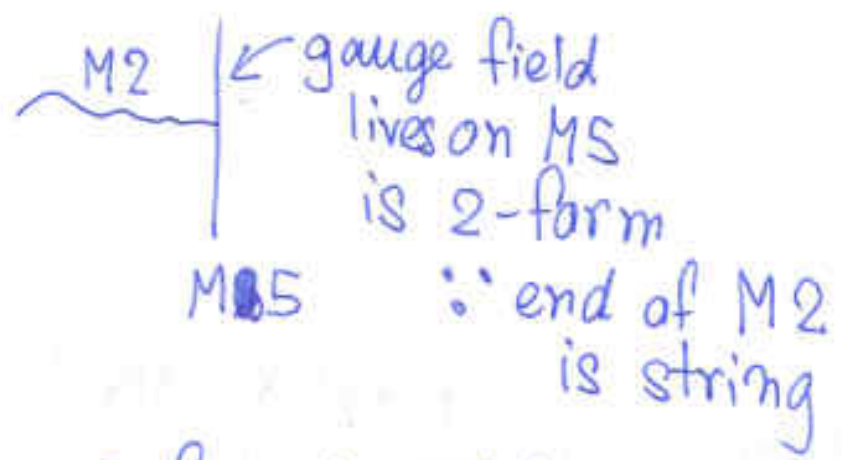 M2
gauge field
lives on M5
is 2-form
M5
∵ end of M2
is string